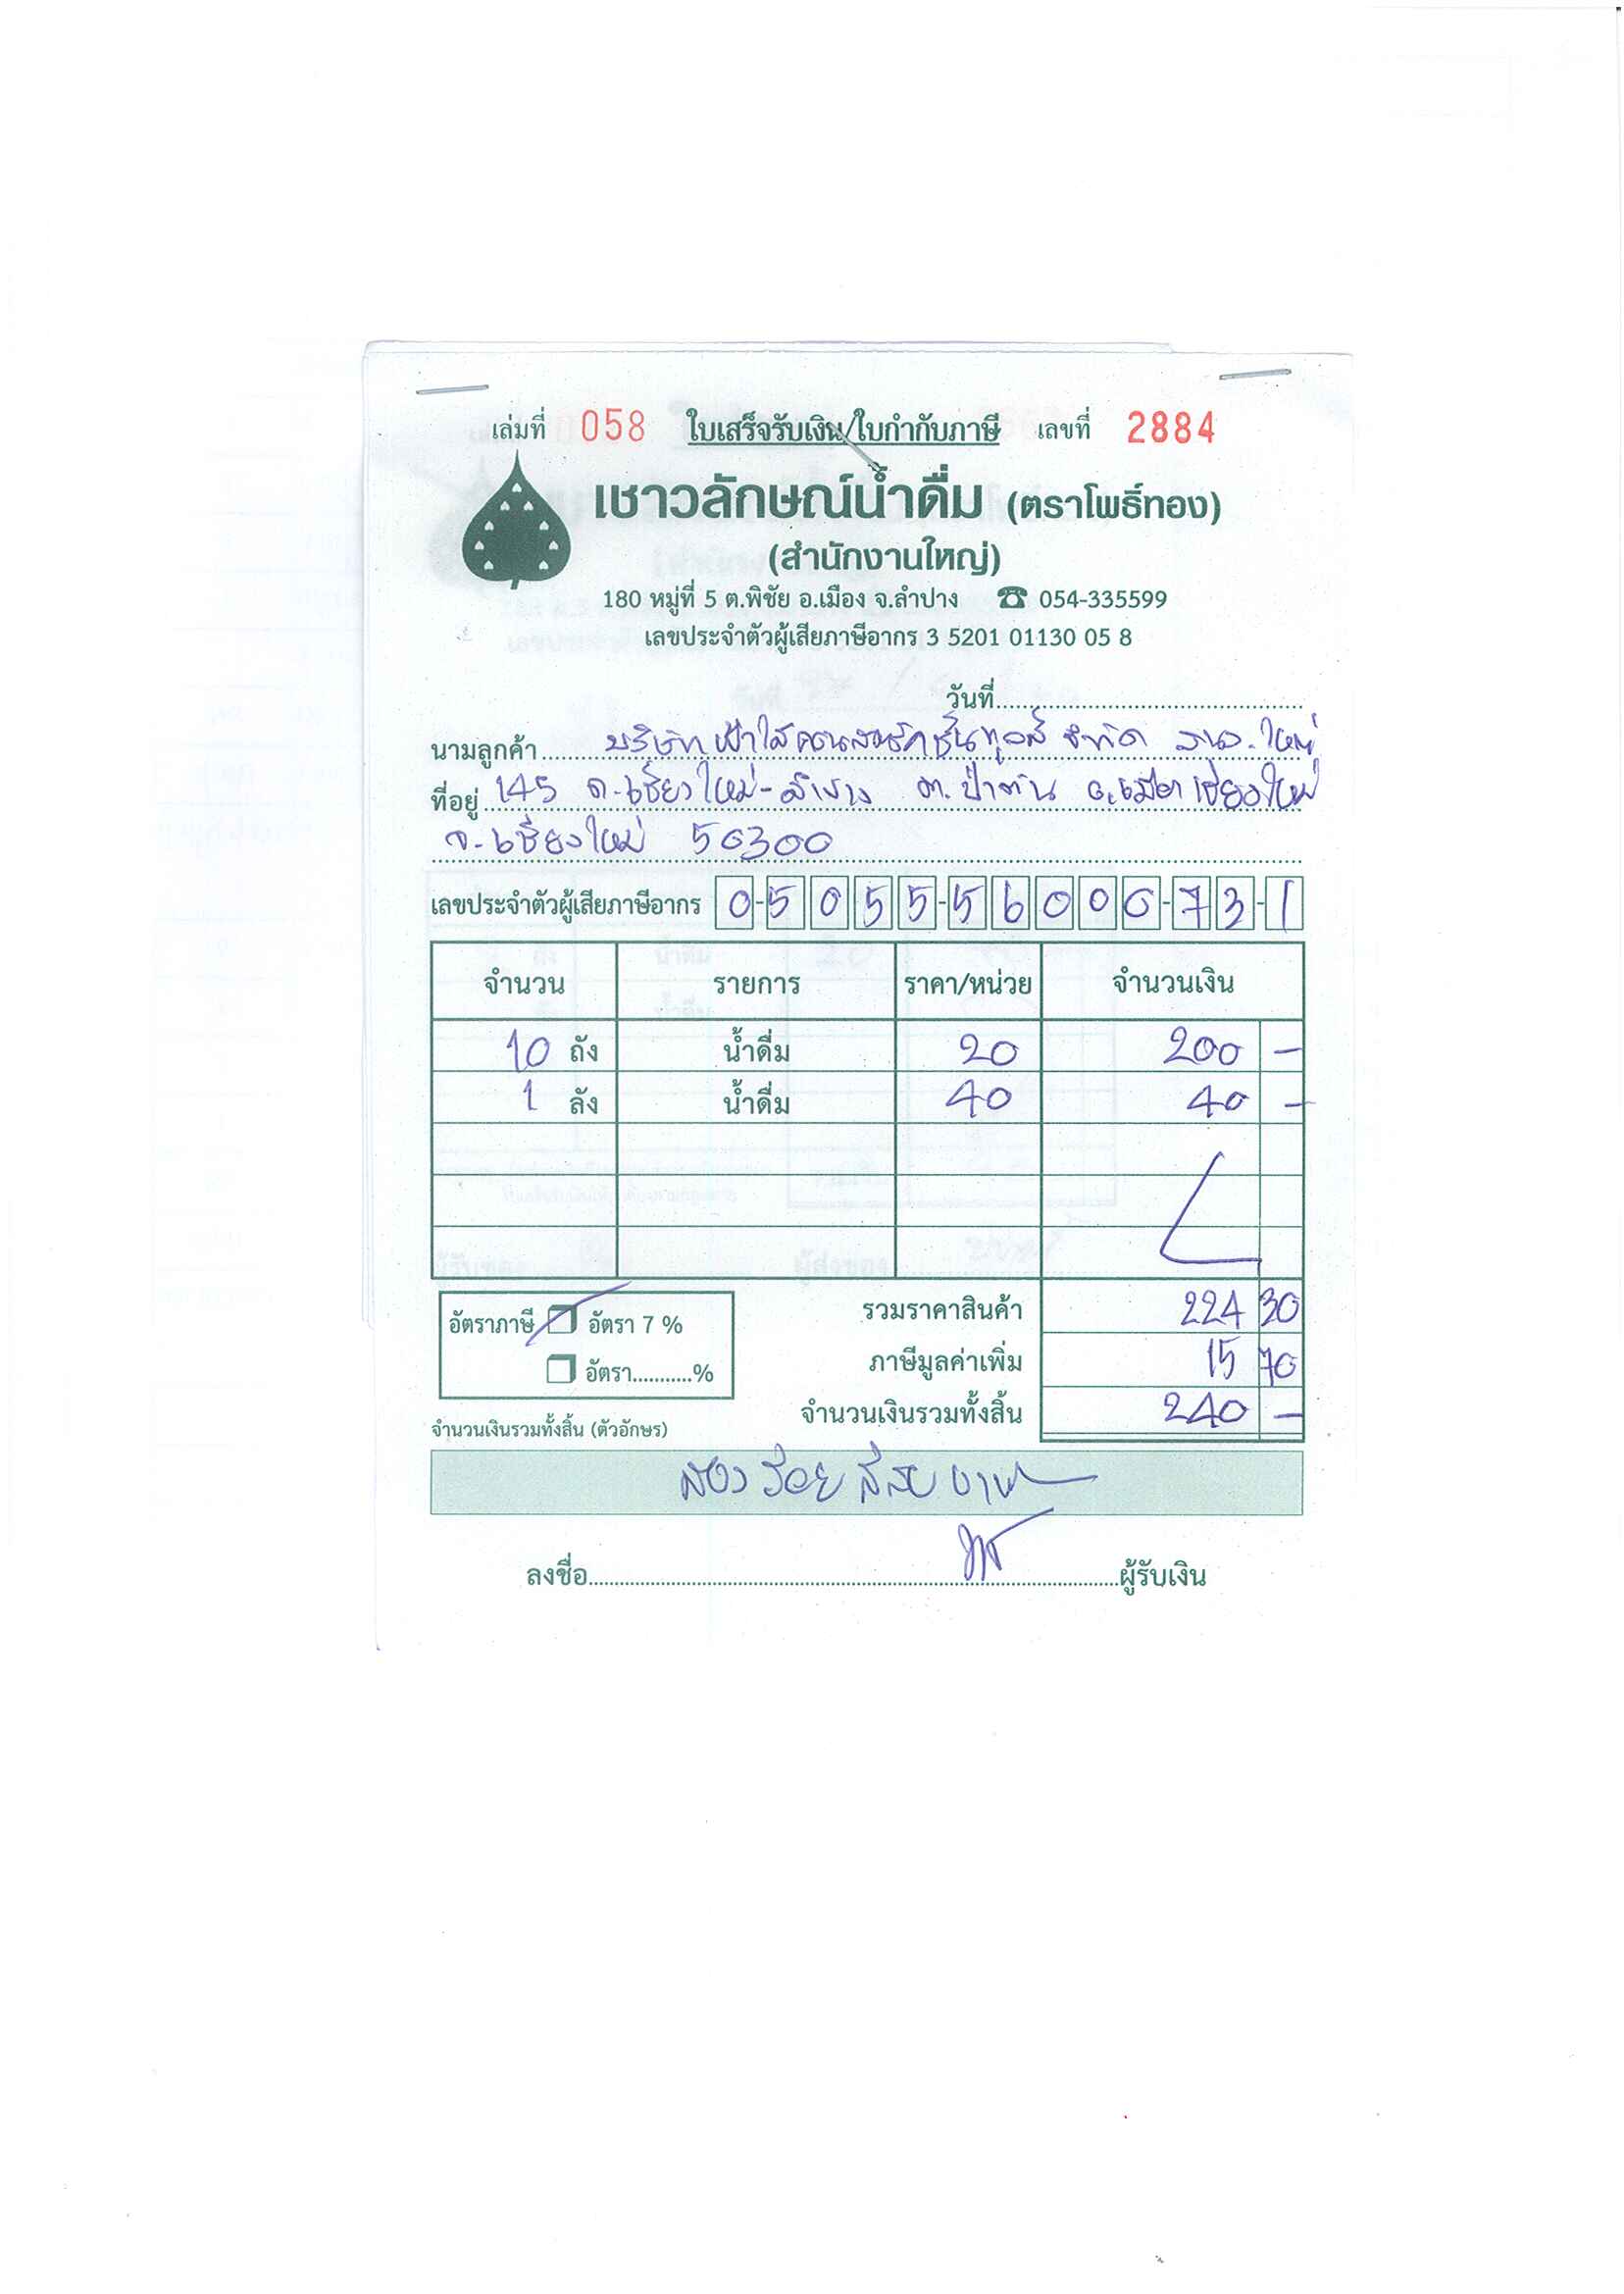 เล่มที่ 058 ใบเสร็จรับเงิน/ใบกำกับภาษี เลขที่ 2884
เชาวลักษณ์น้ำดื่ม (ตราโพธิ์ทอง)
(สำนักงานใหญ่)
180 หมู่ที่ 5 ต.พิชัย อ.เมือง จ.ลำปาง ☎ 054-335599
เลขประจำตัวผู้เสียภาษีอากร 3 5201 01130 05 8
วันที่
นามลูกค้า บริษัท ฟ้าใสคอนสตรัคชั่นทูลส์ จำกัด สนง.ใหญ่
ที่อยู่ 145 ถ.เชียงใหม่-ลำปาง ต.ป่าตัน อ.เมือง เชียงใหม่
จ.เชียงใหม่ 50300
เลขประจำตัวผู้เสียภาษีอากร 0-5055-56000-73-1
จำนวน รายการ ราคา/หน่วย จำนวนเงิน
10 ถัง น้ำดื่ม 20 200 -
1 ลัง น้ำดื่ม 40 40 -
อัตราภาษี อัตรา 7 % รวมราคาสินค้า 224 30
อัตรา...........% ภาษีมูลค่าเพิ่ม 15 70
จำนวนเงินรวมทั้งสิ้น 240 -
จำนวนเงินรวมทั้งสิ้น (ตัวอักษร)
สองร้อยสี่สิบบาท
ลงชื่อ ผู้รับเงิน